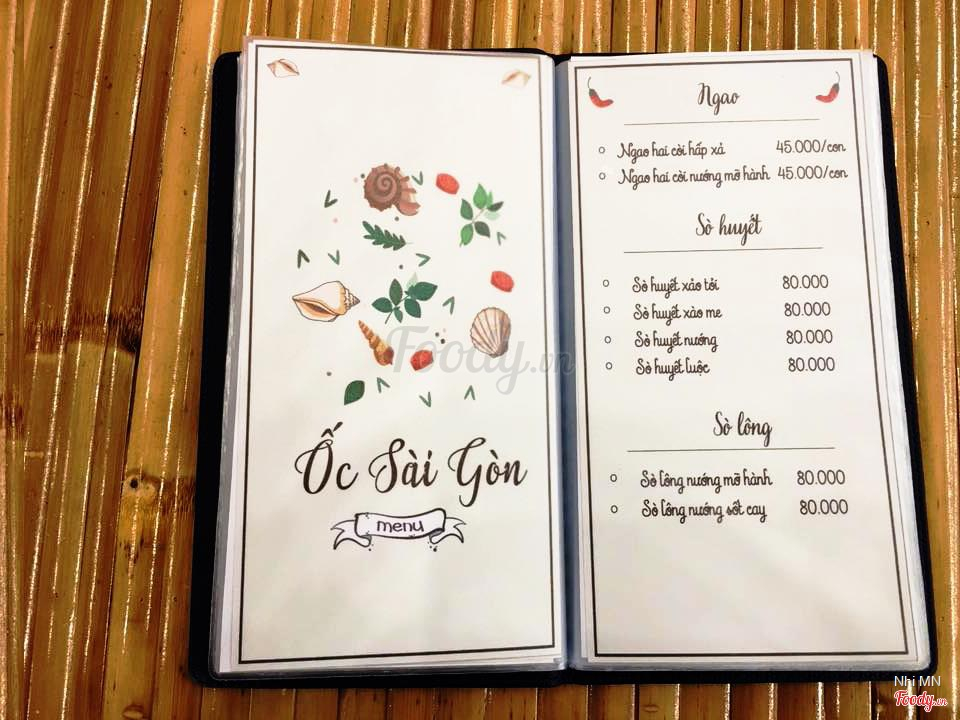 Ốc Sài Gòn
menu
Ngao
Ngao hai còi hấp xả 45.000/con
Ngao hai còi nướng mỡ hành 45.000/con
Sò huyết
Sò huyết xào tỏi 80.000
Sò huyết xào me 80.000
Sò huyết nướng 80.000
Sò huyết luộc 80.000
Sò lông
Sò lông nướng mỡ hành 80.000
Sò lông nướng sốt cay 80.000
Foody.vn
Nhi MN
Foody.vn